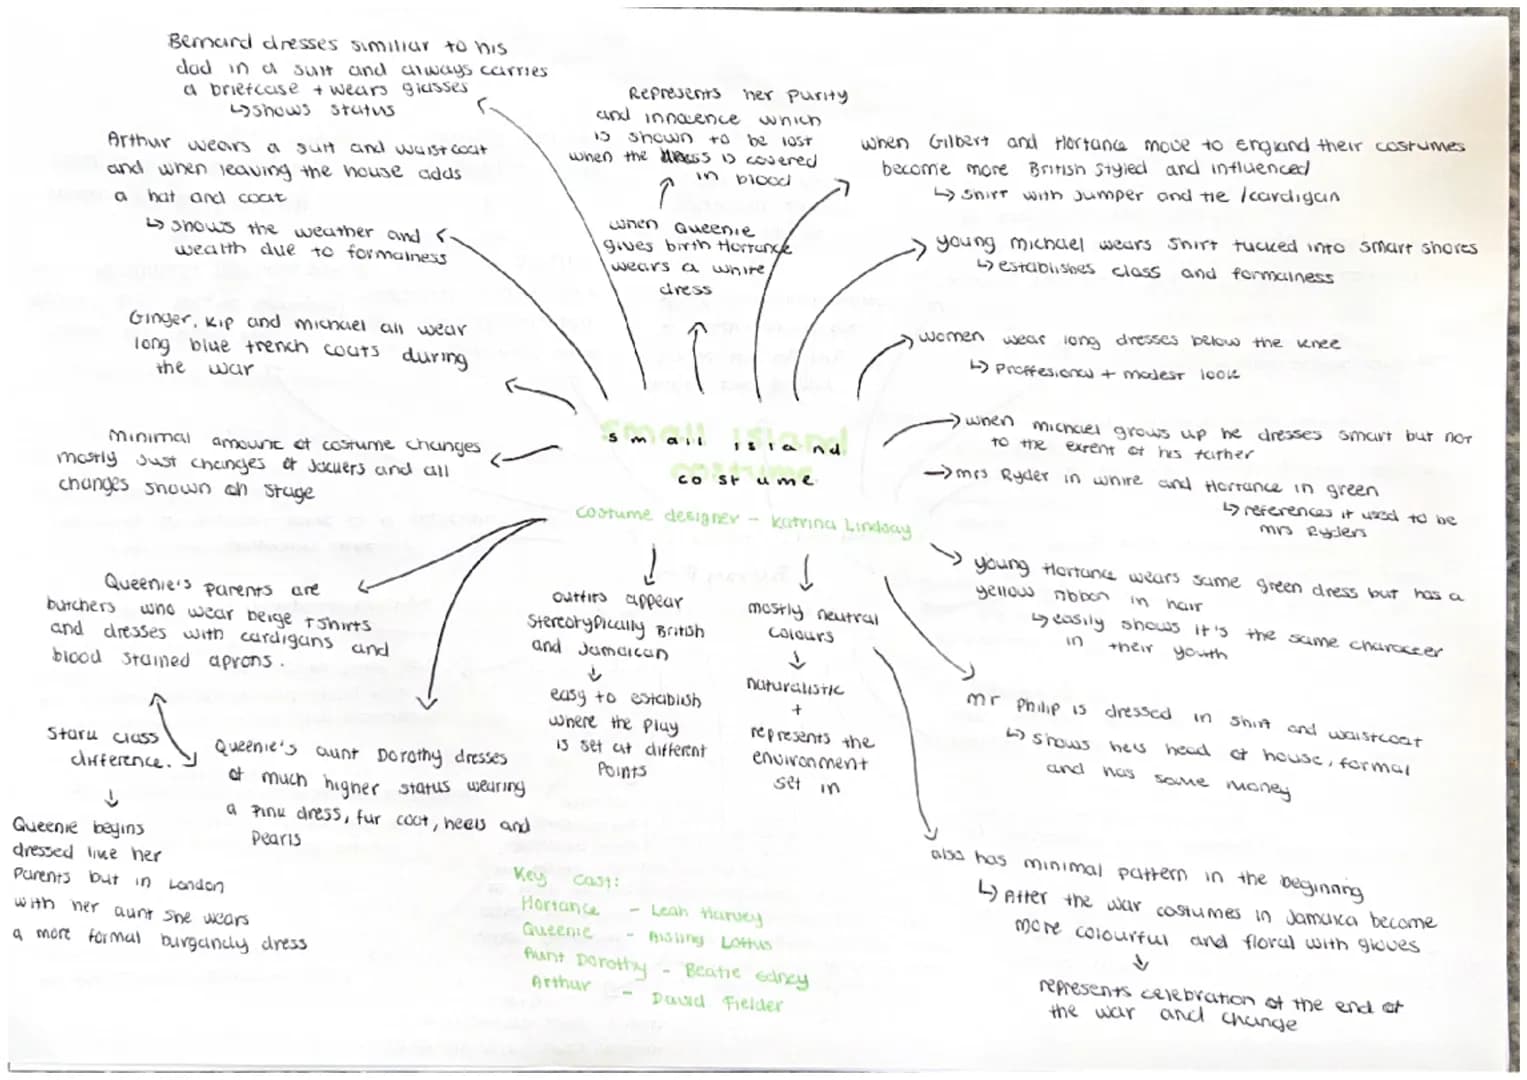 Bernard dresses similiar to his
dad in a suit and always carries
a briefcase + wears glasses
↳ shows status
Arthur wears a suit and waistcoat
and when leaving the house adds
a hat and coat
↳ shows the weather and
wealth due to formalness
Ginger, Kip and michael all wear
long blue trench coats during
the war
minimal amount of costume changes
mostly just changes of layers and all
changes shown on stage
Queenie's parents are
butchers who wear beige tshirts
and dresses with cardigans and
blood stained aprons.
Stark class
difference.
Queenie begins
dressed like her
parents but in London
with her aunt she wears
a more formal burgandy dress
Queenie's aunt Dorothy dresses
of much higher status wearing
a pink dress, fur coat, heels and
pearls
Represents her purity
and innocence which
is shown to be lost
when the dress is covered
in blood
when Queenie
gives birth Hortance
wears a white
dress
small island
costume
small island
costume
costume designer - Katrina Lindsay
outfits appear
stereotypically British
and Jamaican
easy to establish
where the play
is set at different
points
mostly neutral
colours
naturalistic
+
represents the
environment
set in
Key cast:
Hortance - Leah Harvey
Queenie - Aisling Loftus
Aunt Dorothy - Beatie Edney
Arthur - David Fielder
when Gilbert and Hortance move to England their costumes
become more British styled and influenced
↳ shirt with jumper and tie / cardigan
young michael wears shirt tucked into smart shores
↳ establishes class and formalness
women wear long dresses below the knee
↳ proffesional + modest look
when michael grows up he dresses smart but not
to the extent of his father
mrs Ryder in white and Hortance in green
↳ references it used to be
mrs Ryders
young Hortance wears same green dress but has a
yellow ribbon in hair
↳ easily shows it's the same character
in their youth
mr Philip is dressed in shirt and waistcoat
↳ shows he's head of house, formal
and has some money
also has minimal pattern in the beginning
↳ After the war costumes in Jamaica become
more colourful and floral with gloves
represents celebration of the end of
the war and change